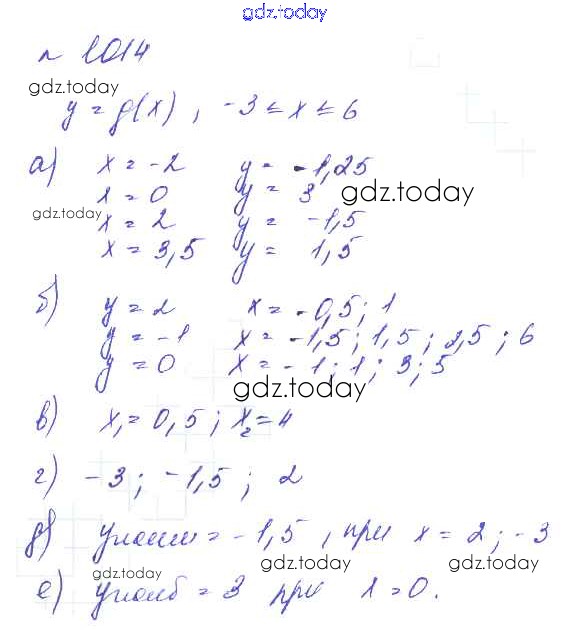 gdz.today
№ 1014
gdz.today
y = g(x), -3 ≤ x ≤ 6
а) x = -2 y = -1,25
x = 0 y = 3 gdz.today
gdz.today
x = 2 y = -1,5
x = 3,5 y = 1,5
б) y = 2 x = -0,5; 1
y = -1 x = -1,5; 1,5; 2,5; 6
y = 0 x = -1; 1; 3; 5
gdz.today
в) x₁ = 0,5; x₂ = 4
г) -3; -1,5; 2
д) yнаим = -1,5, при x = 2; -3
gdz.today gdz.today gdz.today
е) yнаиб = 3 при x = 0.